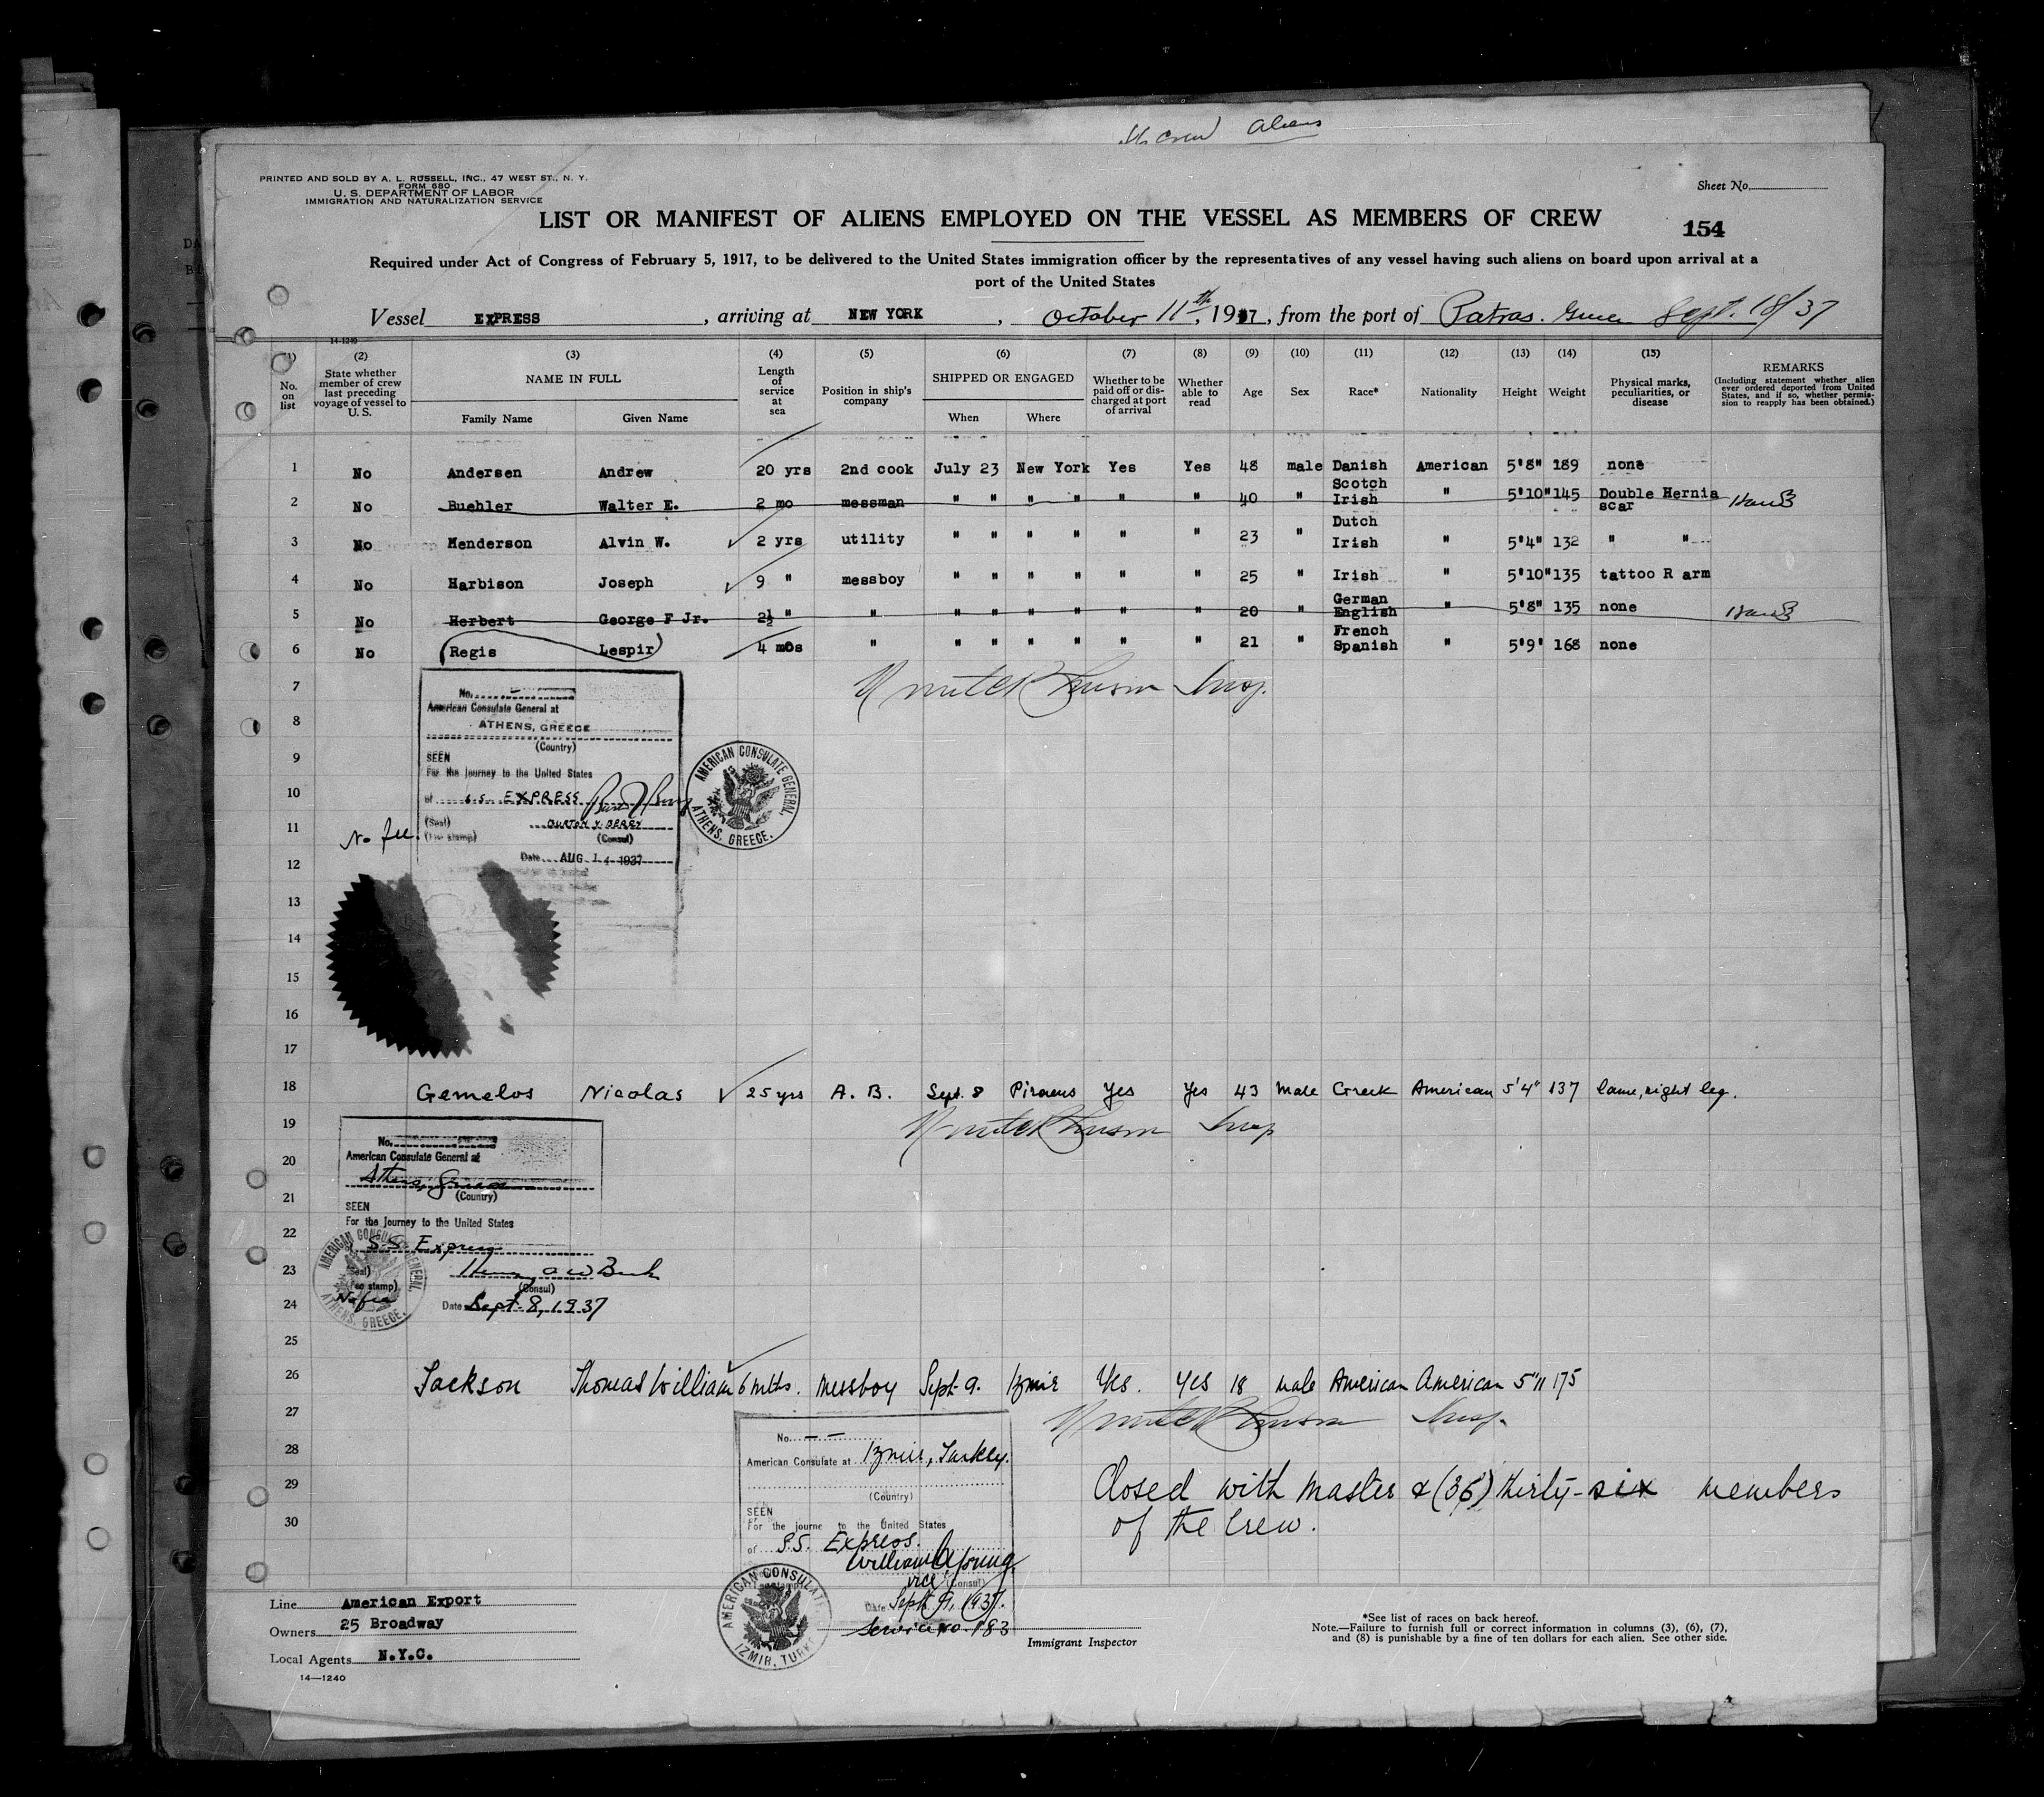 Crew Aliens
PRINTED AND SOLD BY A. L. RUSSELL, INC., 47 WEST ST., N. Y.
FORM 680
U. S. DEPARTMENT OF LABOR
IMMIGRATION AND NATURALIZATION SERVICE
Sheet No.
LIST OR MANIFEST OF ALIENS EMPLOYED ON THE VESSEL AS MEMBERS OF CREW
154
Required under Act of Congress of February 5, 1917, to be delivered to the United States immigration officer by the representatives of any vessel having such aliens on board upon arrival at a
port of the United States
Vessel EXPRESS, arriving at NEW YORK, October 11th, 1937, from the port of Patras. Greece Sept. 18/37
14-1240
(1) No. on list
(2) State whether member of crew last preceding voyage of vessel to U.S.
(3) NAME IN FULL Family Name Given Name
(4) Length of service at sea
(5) Position in ship's company
(6) SHIPPED OR ENGAGED When Where
(7) Whether to be paid off or discharged at port of arrival
(8) Whether able to read
(9) Age
(10) Sex
(11) Race*
(12) Nationality
(13) Height
(14) Weight
(15) Physical marks, peculiarities, or disease
REMARKS (Including statement whether alien ever ordered deported from United States, and if so, whether permission to reapply has been obtained.)
1 No Andersen Andrew 20 yrs 2nd cook July 23 New York Yes Yes 48 male Danish American 5'8" 189 none
2 No Buehler Walter E. 2 mo messman " " " " " " 40 " Scotch Irish " 5'10" 145 Double Hernia scar
3 No Henderson Alvin W. 2 yrs utility " " " " " " 23 " Dutch Irish " 5'4" 132 " "
4 No Harbison Joseph 9 " messboy " " " " " " 25 " Irish " 5'10" 135 tattoo R arm
5 No Herbert George F Jr. 2½ " " " " " " " " 20 " German English " 5'8" 135 none
6 No Regis Lespir 4 mos " " " " " " " 21 " French Spanish " 5'9" 168 none
7
8
9
10
11
12
13
14
15
16
17
No.
American Consulate General at
ATHENS, GREECE
(Country)
SEEN
For the journey to the United States
of S.S. EXPRESS
(Seal) BURTON Y. BERRY
(Fee stamp) (Consul)
No fee.
Date AUG 14 1937
AMERICAN CONSULATE GENERAL, ATHENS, GREECE.
18 Gemelos Nicolas 25 yrs A. B. Sept. 8 Piraeus Yes Yes 43 Male Greek American 5'4" 137 lame, right leg.
19
20
21
22
23
24
25
No.
American Consulate General at
Athens, Greece
(Country)
SEEN
For the Journey to the United States
S.S. Express
(Seal)
(Fee stamp) (Consul)
No fee
Date Sept. 8, 1937
AMERICAN CONSULATE GENERAL, ATHENS, GREECE.
26 Jackson Thomas William 6 mths. Messboy Sept 9. Izmir Yes. Yes 18 male American American 5"11 175
27
28
29
30
No.
American Consulate at Izmir, Turkey.
(Country)
SEEN
For the journe to the United States
of S.S. Express.
William Young
vice (Consul)
Date Sept. 9, 1937.
Service No. 183
AMERICAN CONSULATE, IZMIR, TURK
Closed with Master & (36) thirty-six members
of the Crew.
Line American Export
Owners 25 Broadway
Local Agents N.Y.C.
14—1240
Immigrant Inspector
*See list of races on back hereof.
Note.—Failure to furnish full or correct information in columns (3), (6), (7),
and (8) is punishable by a fine of ten dollars for each alien. See other side.